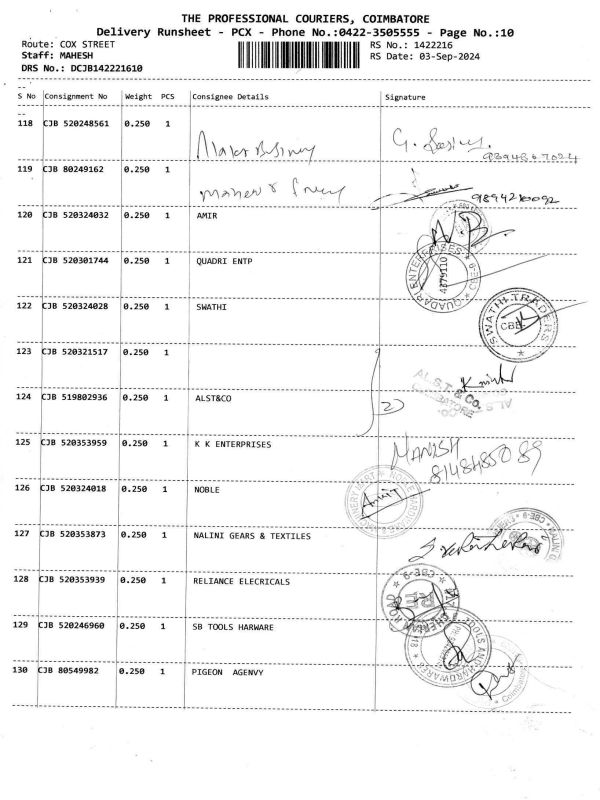 THE PROFESSIONAL COURIERS, COIMBATORE
Delivery Runsheet - PCX - Phone No.:0422-3505555 - Page No.:10
Route: COX STREET
RS No.: 1422216
Staff: MAHESH
RS Date: 03-Sep-2024
DRS No.: DCJB142221610
S No Consignment No Weight PCS Consignee Details Signature
118 CJB 520248561 0.250 1
119 CJB 80249162 0.250 1
9894210092
120 CJB 520324032 0.250 1 AMIR
121 CJB 520301744 0.250 1 QUADRI ENTP
QUADARI ENTERPRISES * CBE-9 *
4379110
122 CJB 520324028 0.250 1 SWATHI
SWATHI TRADERS
123 CJB 520321517 0.250 1
124 CJB 519802936 0.250 1 ALST&CO
AL.S.T. & Co.
COIMBATORE
125 CJB 520353959 0.250 1 K K ENTERPRISES
MANISH
126 CJB 520324018 0.250 1 NOBLE
127 CJB 520353873 0.250 1 NALINI GEARS & TEXTILES
128 CJB 520353939 0.250 1 RELIANCE ELECRICALS
129 CJB 520246960 0.250 1 SB TOOLS HARWARE
130 CJB 80549982 0.250 1 PIGEON AGENVY